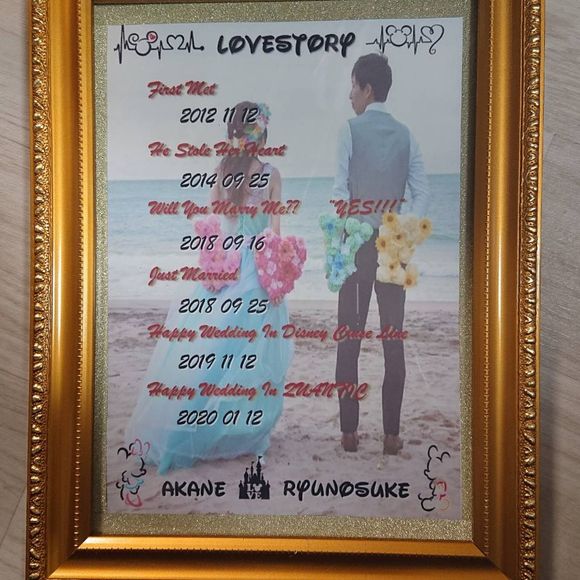 LOVESTORY
First Met
2012 11 12
He Stole Her Heart
2014 09 25
Will You Marry Me?? "YES!!!"
2018 09 16
Just Married
2018 09 25
Happy Wedding In Disney Cruse Line
2019 11 12
Happy Wedding In QUANTIC
2020 01 12
AKANE RYUNOSUKE